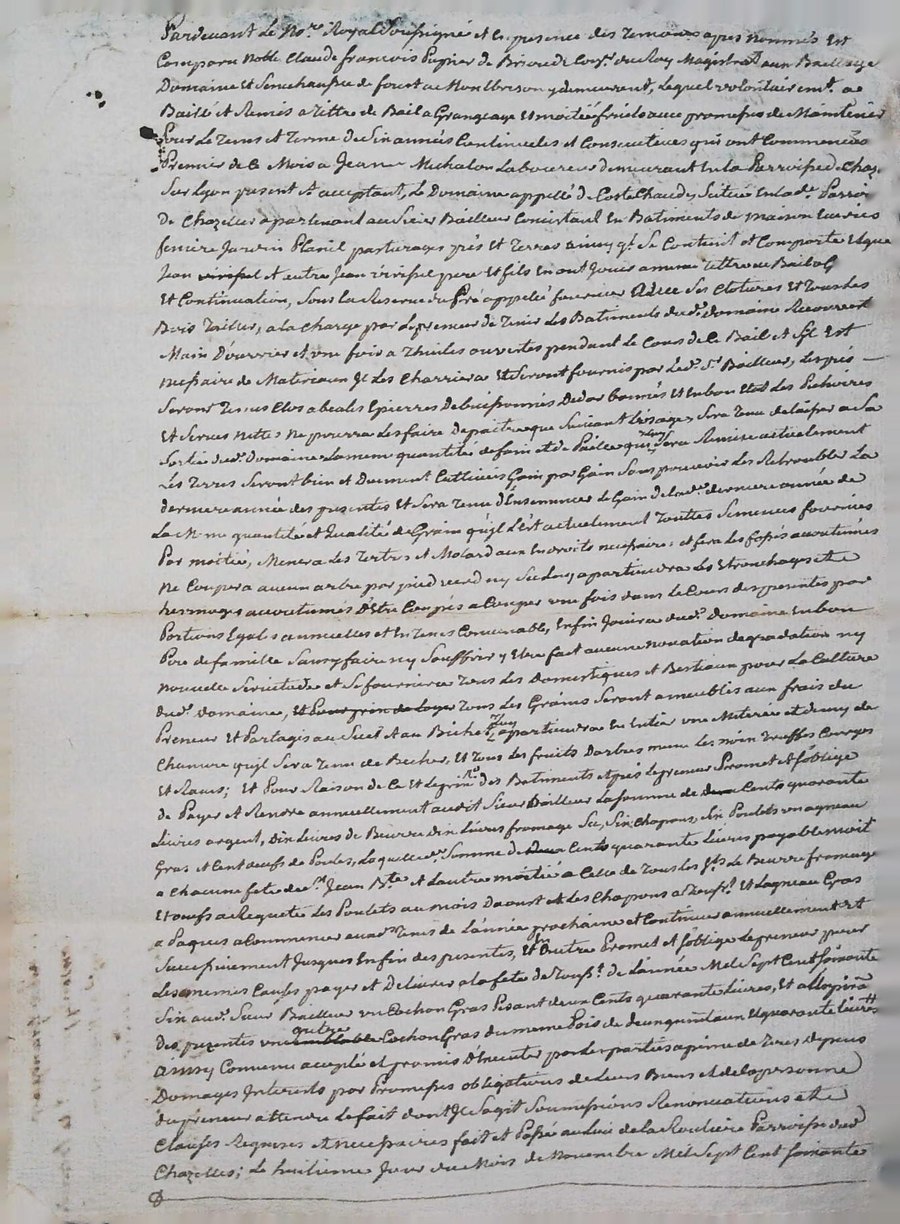 Pardevant Le No.re Royal Soussigné et En presence des Temoins apres nommés Est
Comparu Noble Claude francois Pupier de Brioude Con.r du Roy Magistrat aux Bailliage
Domaine et Senechaussée de forest de Montbrison y demeurant, Lequel volontairem.t a
Baillé et Remis a Tittre de Bail a Grangeage et moitié fruits avec promesses de Maintenir
Pour Le Tems et Terme de Six années Continuelles et Consecutives qui ont Commencées
Premier de Ce Mois a Jean Michalon Laboureur demeurant En la Parroisse de Chaz.
Sur Lyon present et acceptant, Le Domaine appellé de Coste Chaude Scitué En lad.e Parroi
De Chazelles apartenant au Sieur Bailleur Consistant En Batiments de maison Ecuries
feniere Jardin Plassil pasturages prés et Terres ainsy q.l Se Contient et Comporte Et que
Jean et autre Jean pere Et fils En ont Jouis a meme tittre de Bail
Et Continuation, Sous La Reserve du Pré appellé Avec Ses Clotures Et Tous Les
Bois Taillis, a la Charge par Le preneur de Tenir Les Batiments dud.t Domaine Recouvert
Main D'ouvrier et une fois a Thuiles ouvertes pendant le Cours de Ce Bail et S'il Est
necessaire de Materiaux Il Les Charriera Et Seront fournis par Led.t S.r Bailleur, Les prés
Seront Tenus Clos a beales Epierres Debuissonnés Et En bon Etat Les Pechoires
Et Serves nettes ne pourra Les faire Depaitre que Suivant L'usage, Sera Tenu de Laisser a Sa
Sortie du d.t Domaine La meme quantité de foin et de Paille qui Luy Sera Remise actuellement
Les Terres Seront bien et Duement Cultivées Gain par Gain Sans pouvoir Les Retroubler La
derniere année des presentes Et Sera Tenu d'Ensemencer Le Gain de la d.e derniere année de
La Meme quantité et Qualité de Grain qu'il L'est actuellement Touttes Semences fournies
Par moitié, Menera des Tertres et Molard aux Endroits necessaires et fera Les fossés accoutumés
Ne Coupera aucun arbre par pied verd ny Sec Luy apartiendra Les Etronchages et
hermages accoutumés D'Etre Coupés a Couper une fois dans Le Cours des presentes par
Portions Egales annuelles et En Tems Convenable, Enfin Jouira du d.t Domaine En bon
Pere de famille Sans y faire ny Souffrir y Etre fait aucune novation degradation ny
nouvelle Servitude et Se fournira Tous Les Domestiques et Bestiaux pour La Culture
dud.t Domaine, Tous Les Grains Seront ameublés aux frais du
Preneur Et Partagés au Suel et au Bichet Luy apartiendra En Entier une Miterée et demy de
Chanvre qu'il Sera Tenu de Becher, Et Tous Les fruits Darbres meme Les noix Truffes Courges
Et Raves; Et Pour Raison de Ce Et Le prix des Batiments Et prés Le preneur Promet et S'oblige
de Payer et Rendre annuellement audit Sieur Bailleur La Somme de deux Cents quarante
Livres argent, Dix Livres de Beurre dix Livres fromage Sec, Six Chapons, Six Poulets un agneau
Gras et Cent oeufs de Poules, Laquelle Somme de deux Cents quarante Livres payable moit
a Chacune fete de S.t Jean B.te et Lautre moitié a Celle de Tous Les S.ts Le Beurre fromage
Et oeufs a Requete Les Poulets au mois Daoust et Les Chapons a Touss.t Et Lagneau Gras
a Paques a Commencer auxd.s Temes de Lannée prochaine et Continuer annuellement Et
Successivement Jusques Enfin des presentes, Et En Outre Promet et S'oblige Le preneur pour
Les memes Causes payer et Delivrer a la fete de Touss.t de Lannée Mil Sept Cent Soixante
Six aud.t Sieur Bailleur un Cochon Gras Pesant deux Cents quarante Livres, Et a L'expira
Des presentes un autre Cochon Gras du meme Pois de deux Cents quarante Livres
ainsy Convenu accepté et promis D'Executer par Les parties a peine de Tous depens
Domages Interets par Promesses obligations de Leurs Biens et de la personne
du preneur attendu Le fait dont Il Sagit Soumissions Renonciations et
Clauses Requises et necessaires fait et Passé au Lieu de la Parroisse dud
Chazelles; Le huitieme Jour du Mois de Novembre Mil Sept Cent Soixante